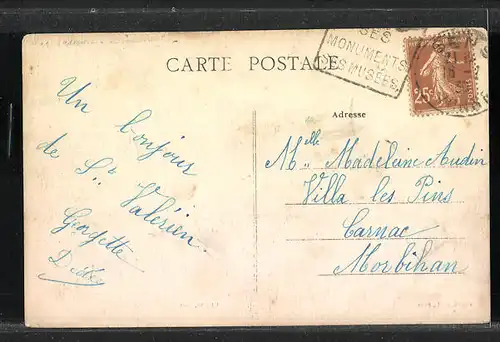 SES
MONUMENTS
SES MUSÉES
CARTE POSTALE
25c
POSTES
Adresse
Un bonjour
de St. Valérien.
Georgette
Melle Madeleine Audin
Villa les Pins
Carnac
Morbihan